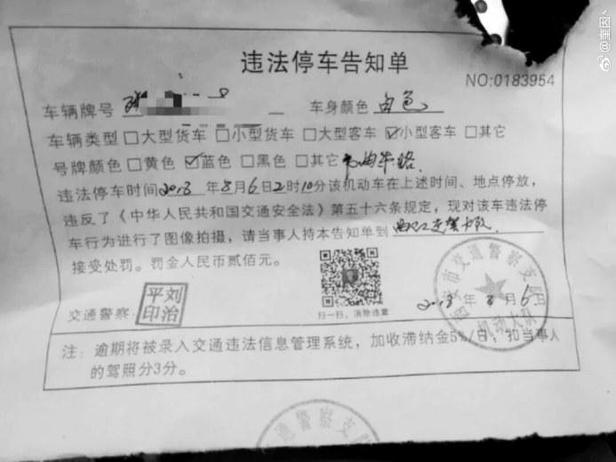 @奎因
违法停车告知单
NO:0183954
车辆牌号 车身颜色 白色
车辆类型 □大型货车 □小型货车 □大型客车 ☑小型客车 □其它
号牌颜色 □黄色 ☑蓝色 □黑色 □其它
违法停车时间2013年8月6日2时10分该机动车在上述时间、地点停放,
违反了《中华人民共和国交通安全法》第五十六条规定,现对该车违法停
车行为进行了图像拍摄,请当事人持本告知单到
接受处罚。罚金人民币贰佰元。
交通警察: 刘治平印
扫一扫,消除违章
2013年8月6日
市交通警察支队
机动大队
注:逾期将被录入交通违法信息管理系统,加收滞纳金5%/日,扣当事人
的驾照分3分。
交通警察支